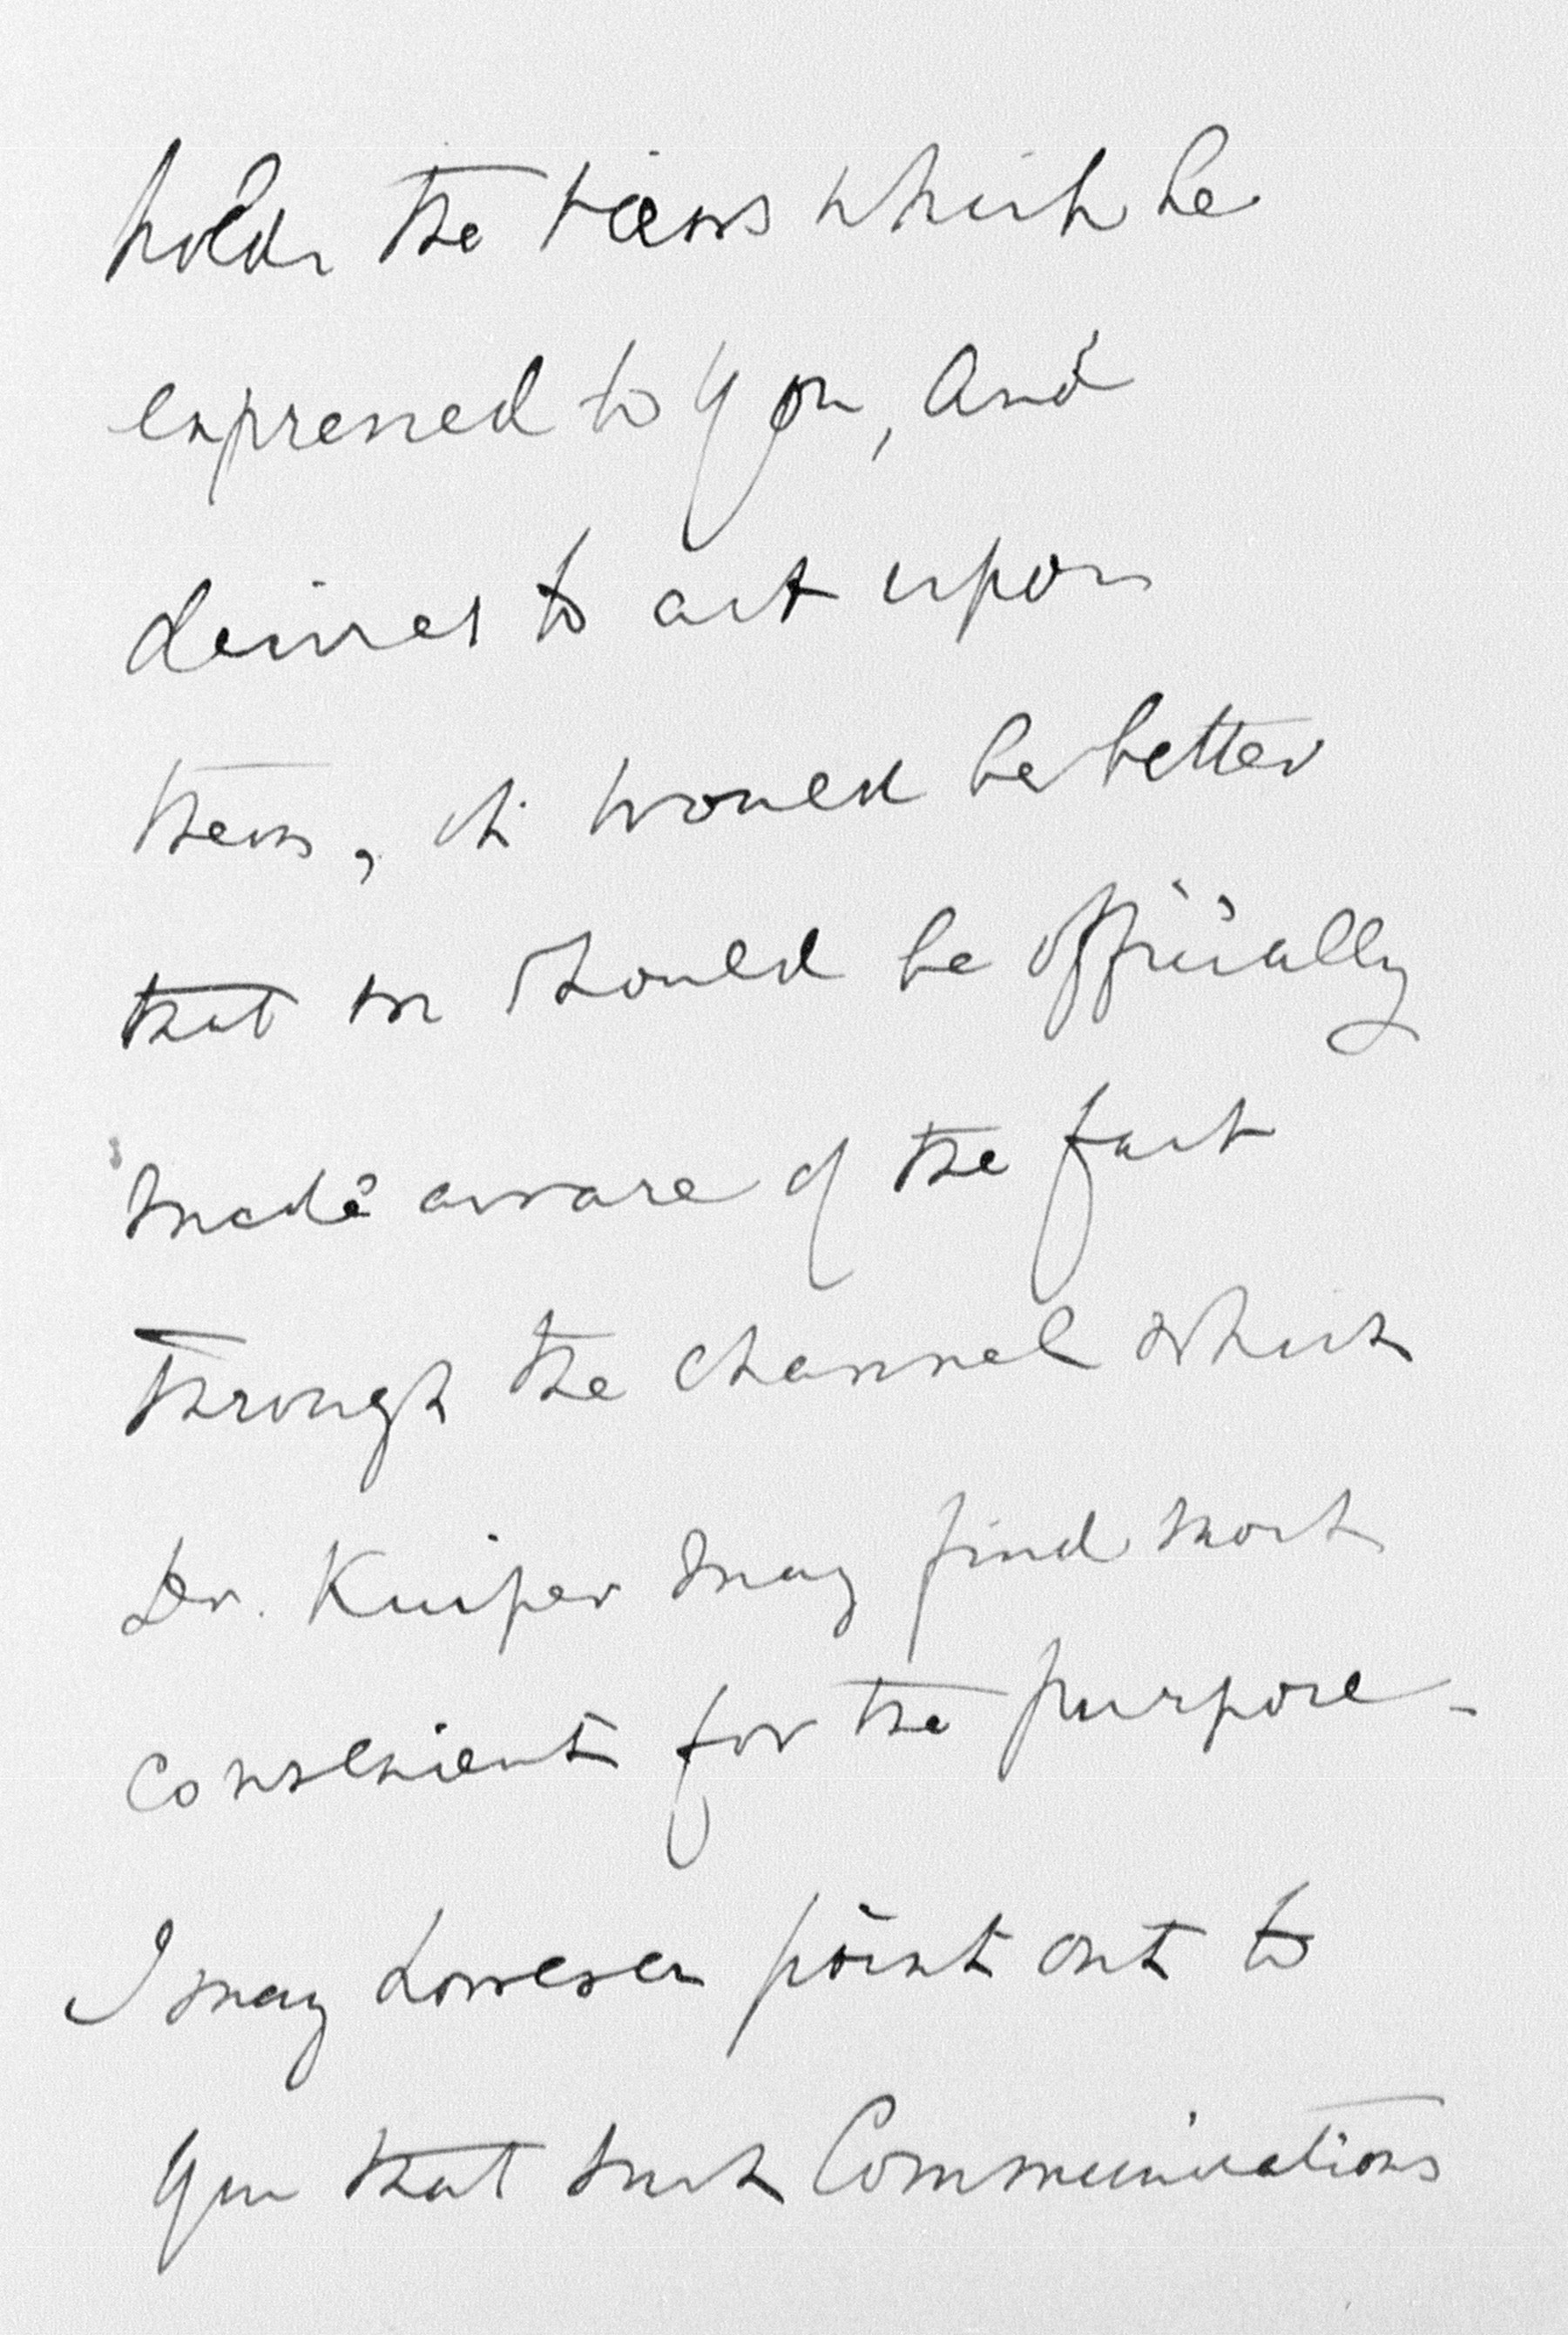 holds the views which he
expressed to you, and
desires to act upon
them, it would be better
that we should be officially
made aware of the fact
through the channel which
Dr. Kuiper may find most
convenient for the purpose -
I may however point out to
you that such Communications